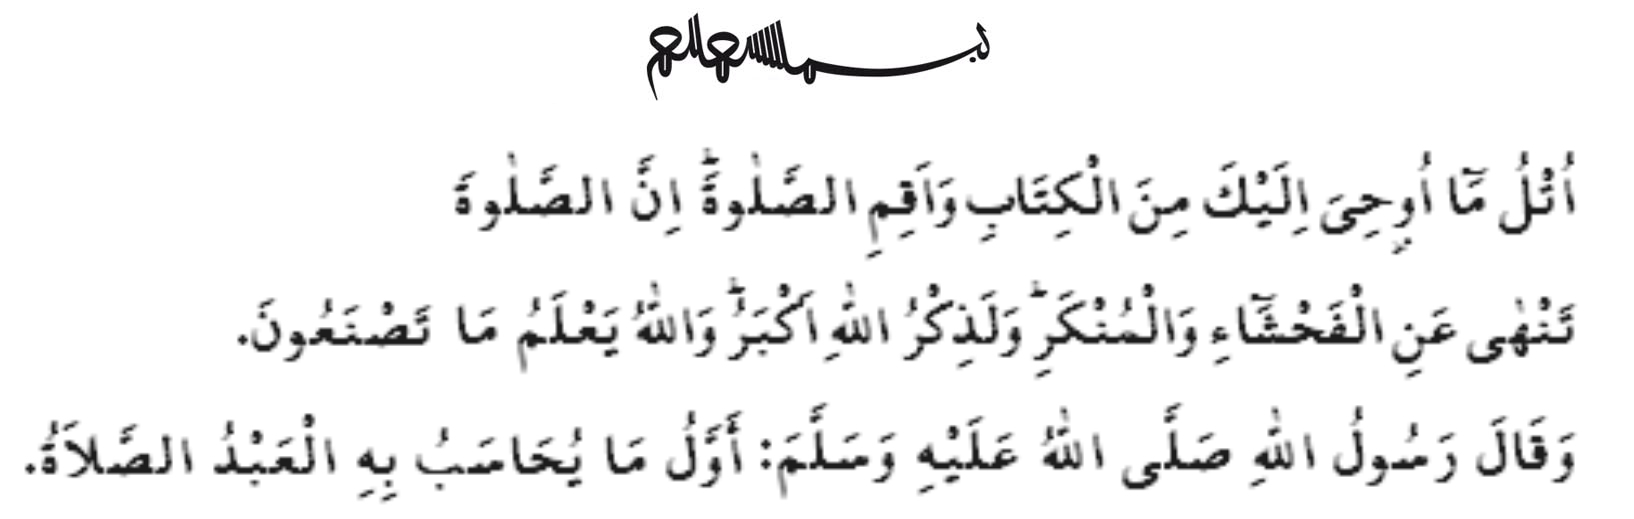 بسم الله الرحمن الرحيم
اُتْلُ مَٓا اُو۫حِىَ اِلَيْكَ مِنَ الْكِتَابِ وَاَقِمِ الصَّلٰوةَۜ اِنَّ الصَّلٰوةَ
تَنْهٰى عَنِ الْفَحْشَٓاءِ وَالْمُنْكَرِۜ وَلَذِكْرُ اللّٰهِ اَكْبَرُۜ وَاللّٰهُ يَعْلَمُ مَا تَصْنَعُونَ.
وَقَالَ رَسُولُ اللّٰهِ صَلَّى اللّٰهُ عَلَيْهِ وَسَلَّمَ: أَوَّلُ مَا يُحَاسَبُ بِهِ الْعَبْدُ الصَّلاَةُ.